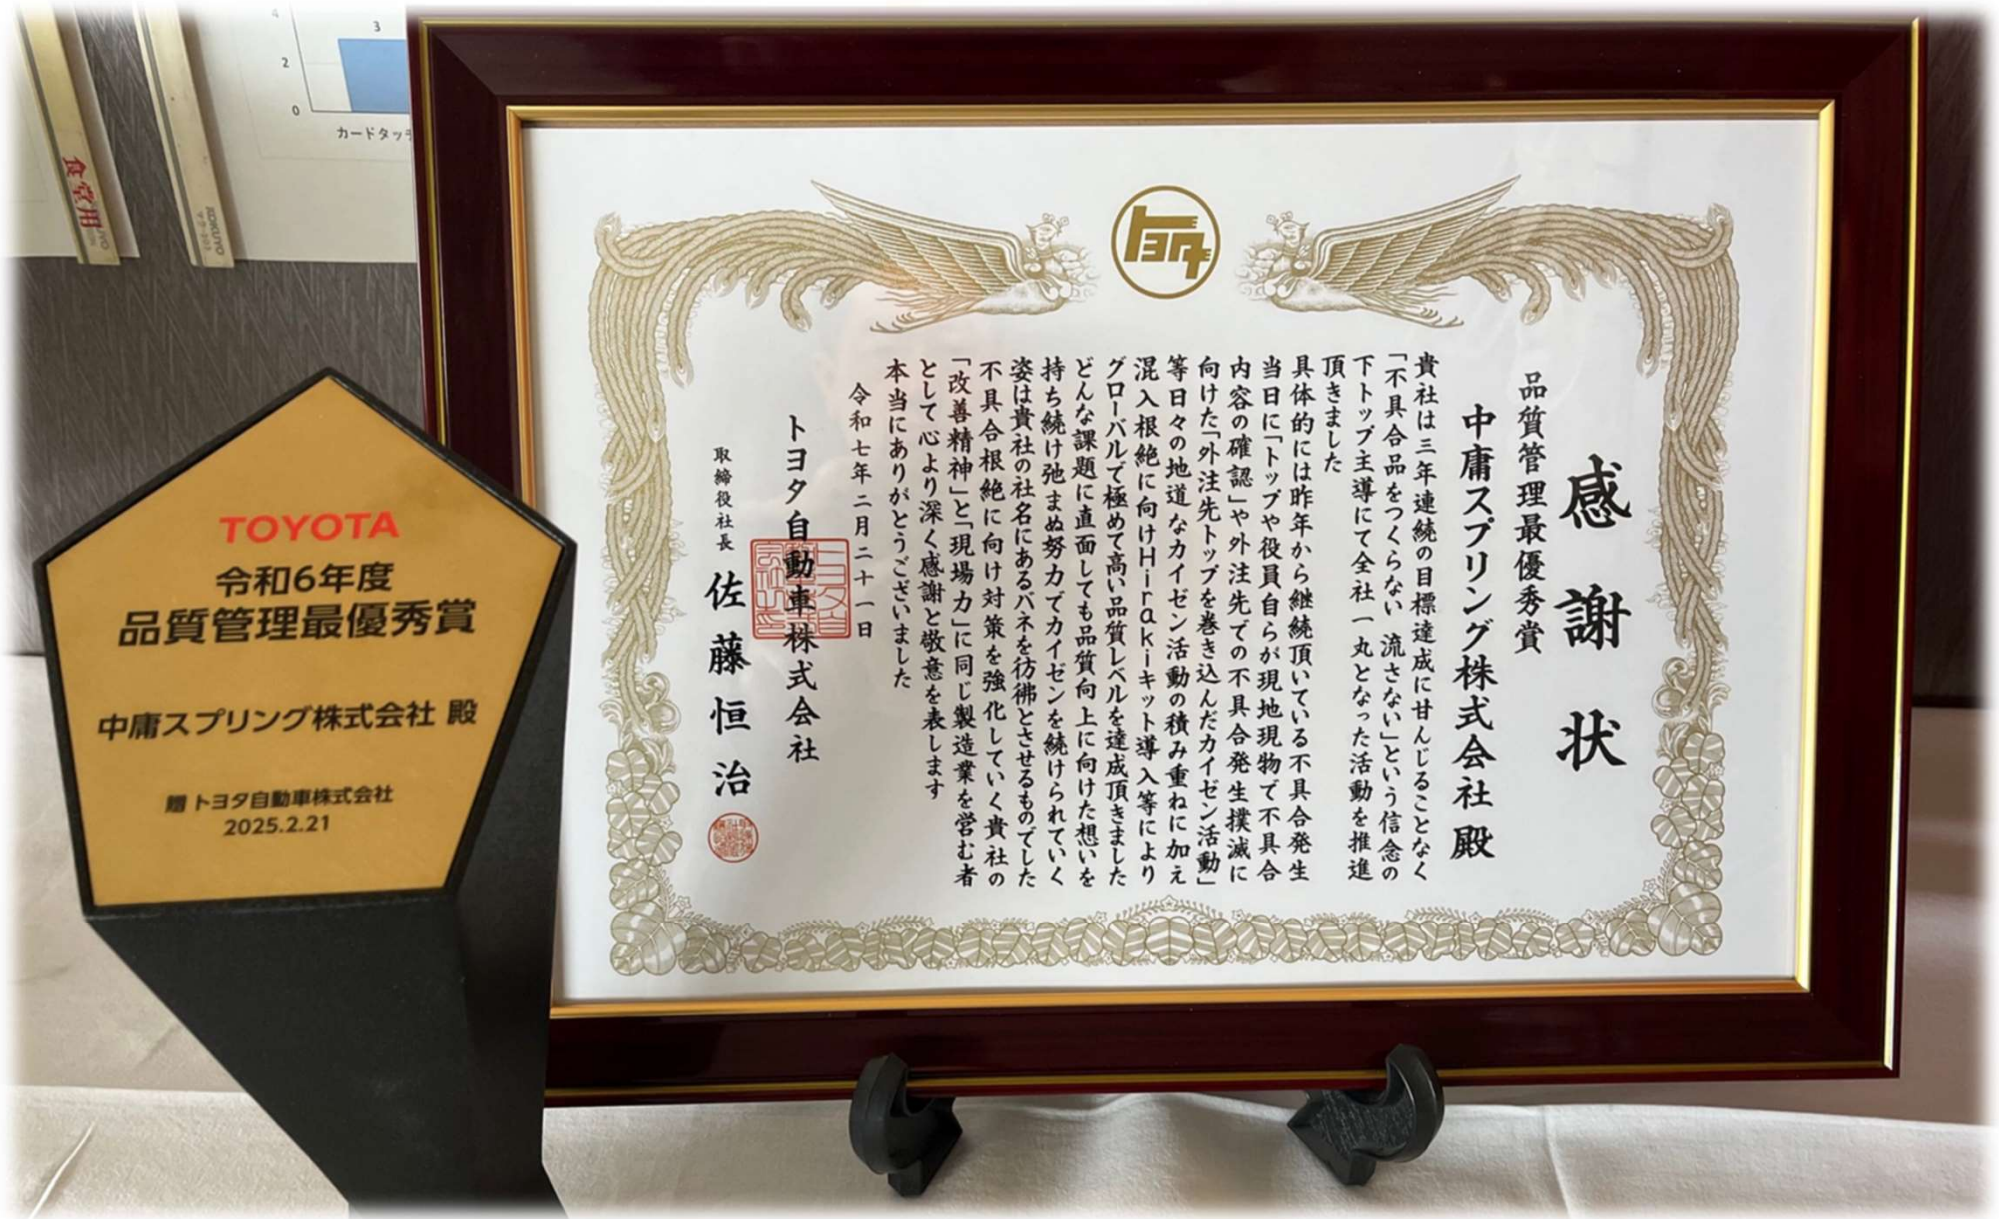 4
3
2
0
カードタッチ
食堂用
KOKUYO
TOYOTA
令和6年度
品質管理最優秀賞
中庸スプリング株式会社 殿
贈 トヨタ自動車株式会社
2025.2.21
トヨタ
感謝状
品質管理最優秀賞
中庸スプリング株式会社 殿
貴社は三年連続の目標達成に甘んじることなく
「不具合品をつくらない 流さない」という信念の
下トップ主導にて全社一丸となった活動を推進
頂きました
具体的には昨年から継続頂いている不具合発生
当日に「トップや役員自らが現地現物で不具合
内容の確認」や外注先での不具合発生撲滅に
向けた「外注先トップを巻き込んだカイゼン活動」
等日々の地道なカイゼン活動の積み重ねに加え
混入根絶に向けHirakiキット導入等により
グローバルで極めて高い品質レベルを達成頂きました
どんな課題に直面しても品質向上に向けた想いを
持ち続け弛まぬ努力でカイゼンを続けられていく
姿は貴社の社名にあるバネを彷彿とさせるものでした
不具合根絶に向け対策を強化していく貴社の
「改善精神」と「現場力」に同じ製造業を営む者
として心より深く感謝と敬意を表します
本当にありがとうございました
令和七年二月二十一日
トヨタ自動車株式会社
取締役社長 佐藤恒治